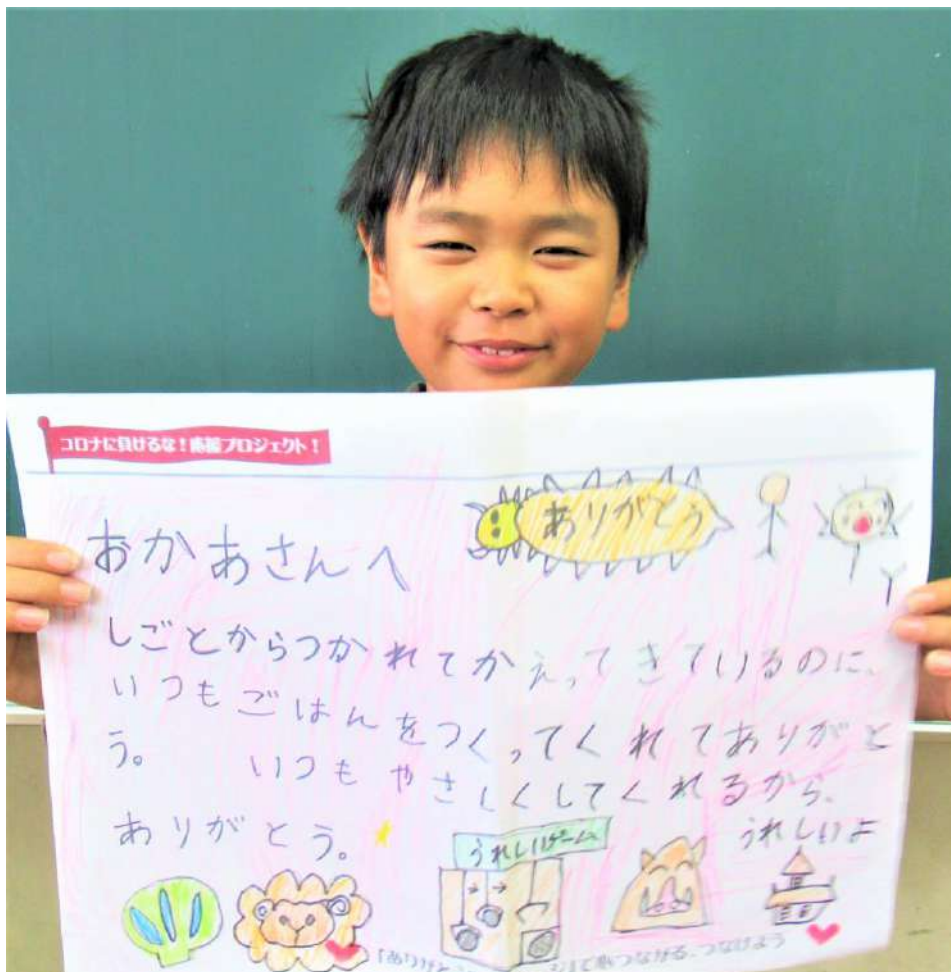 コロナに負けるな!応援プロジェクト!
ありがとう
おかあさんへ
しごとからつかれてかえってきているのに、
いつもごはんをつくってくれてありがと
う。 いつもやさしくしてくれるから、
うれしいよ
ありがとう。
うれしいゲーム
つながる、つなげよう